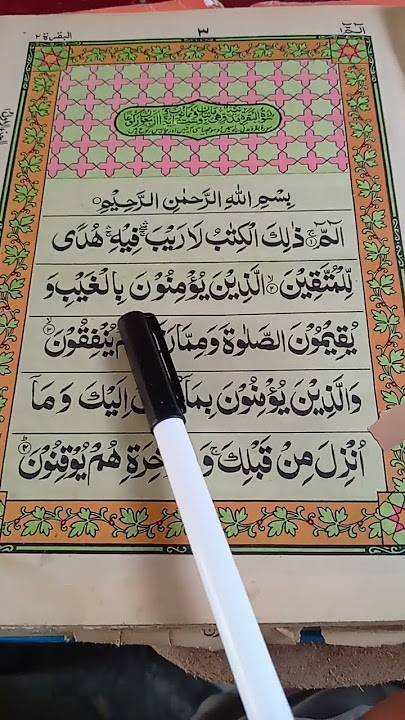 الٓمّٓ ١
٣
البقرة ٢
بِسْمِ اللهِ الرَّحْمٰنِ الرَّحِيْمِ
الٓمّٓ ۚ ﴿١﴾ ذٰلِكَ الْكِتٰبُ لَا رَيْبَ ۛ فِيْهِ ۛ هُدًى
لِّلْمُتَّقِيْنَ ۙ ﴿٢﴾ الَّذِيْنَ يُؤْمِنُوْنَ بِالْغَيْبِ وَ
يُقِيْمُوْنَ الصَّلٰوةَ وَمِمَّا يُنْفِقُوْنَ ۙ ﴿٣﴾
وَالَّذِيْنَ يُؤْمِنُوْنَ بِمَآ اِلَيْكَ وَ مَآ
اُنْزِلَ مِنْ قَبْلِكَ ۚ وَ هُمْ يُوْقِنُوْنَ ۭ ﴿٤﴾